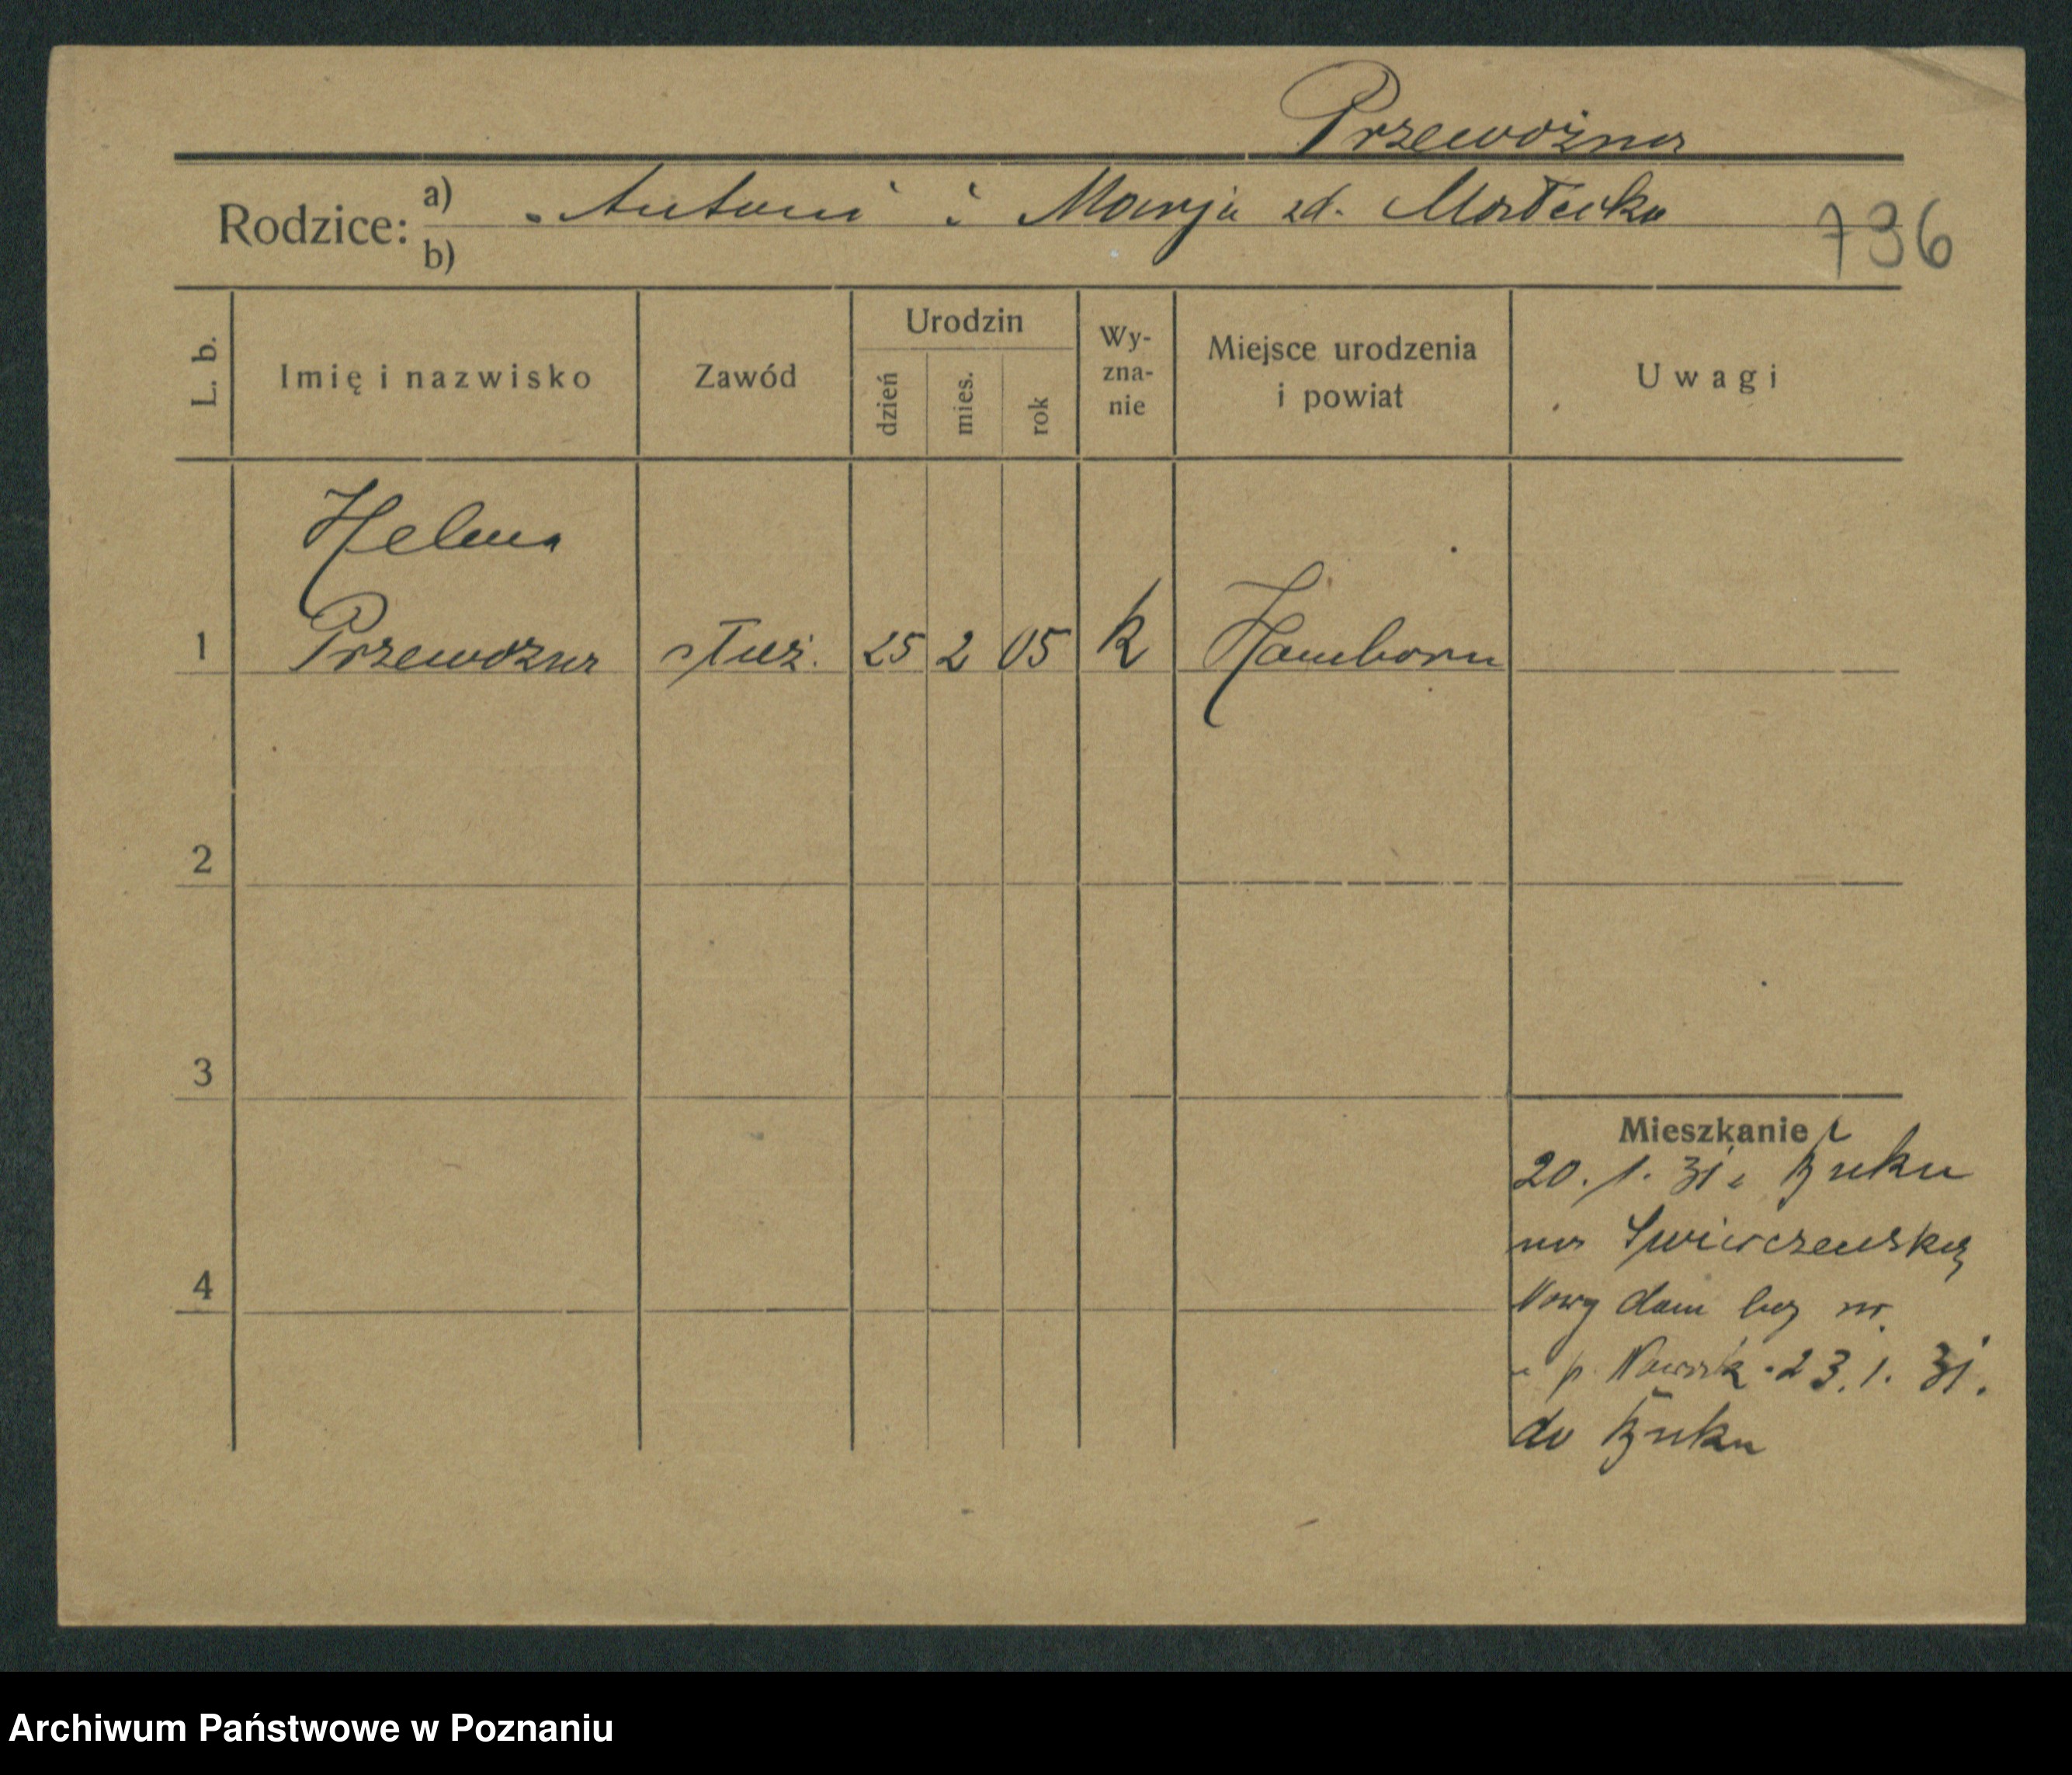 Przewoźna
Rodzice: a) Antoni i Marja zd. Małecka
b)
736
L. b.
Imię i nazwisko
Zawód
Urodzin
dzień
mies.
rok
Wy-
zna-
nie
Miejsce urodzenia
i powiat
Uwagi
Helena
1 Przewoźna służ. 25 2 05 k Hamborn
2
3
4
Mieszkanie
20. 1. 31. z Buku
na
Nowy dom bez nr.
u p. Nowak 23. 1. 31.
do Buku
Archiwum Państwowe w Poznaniu